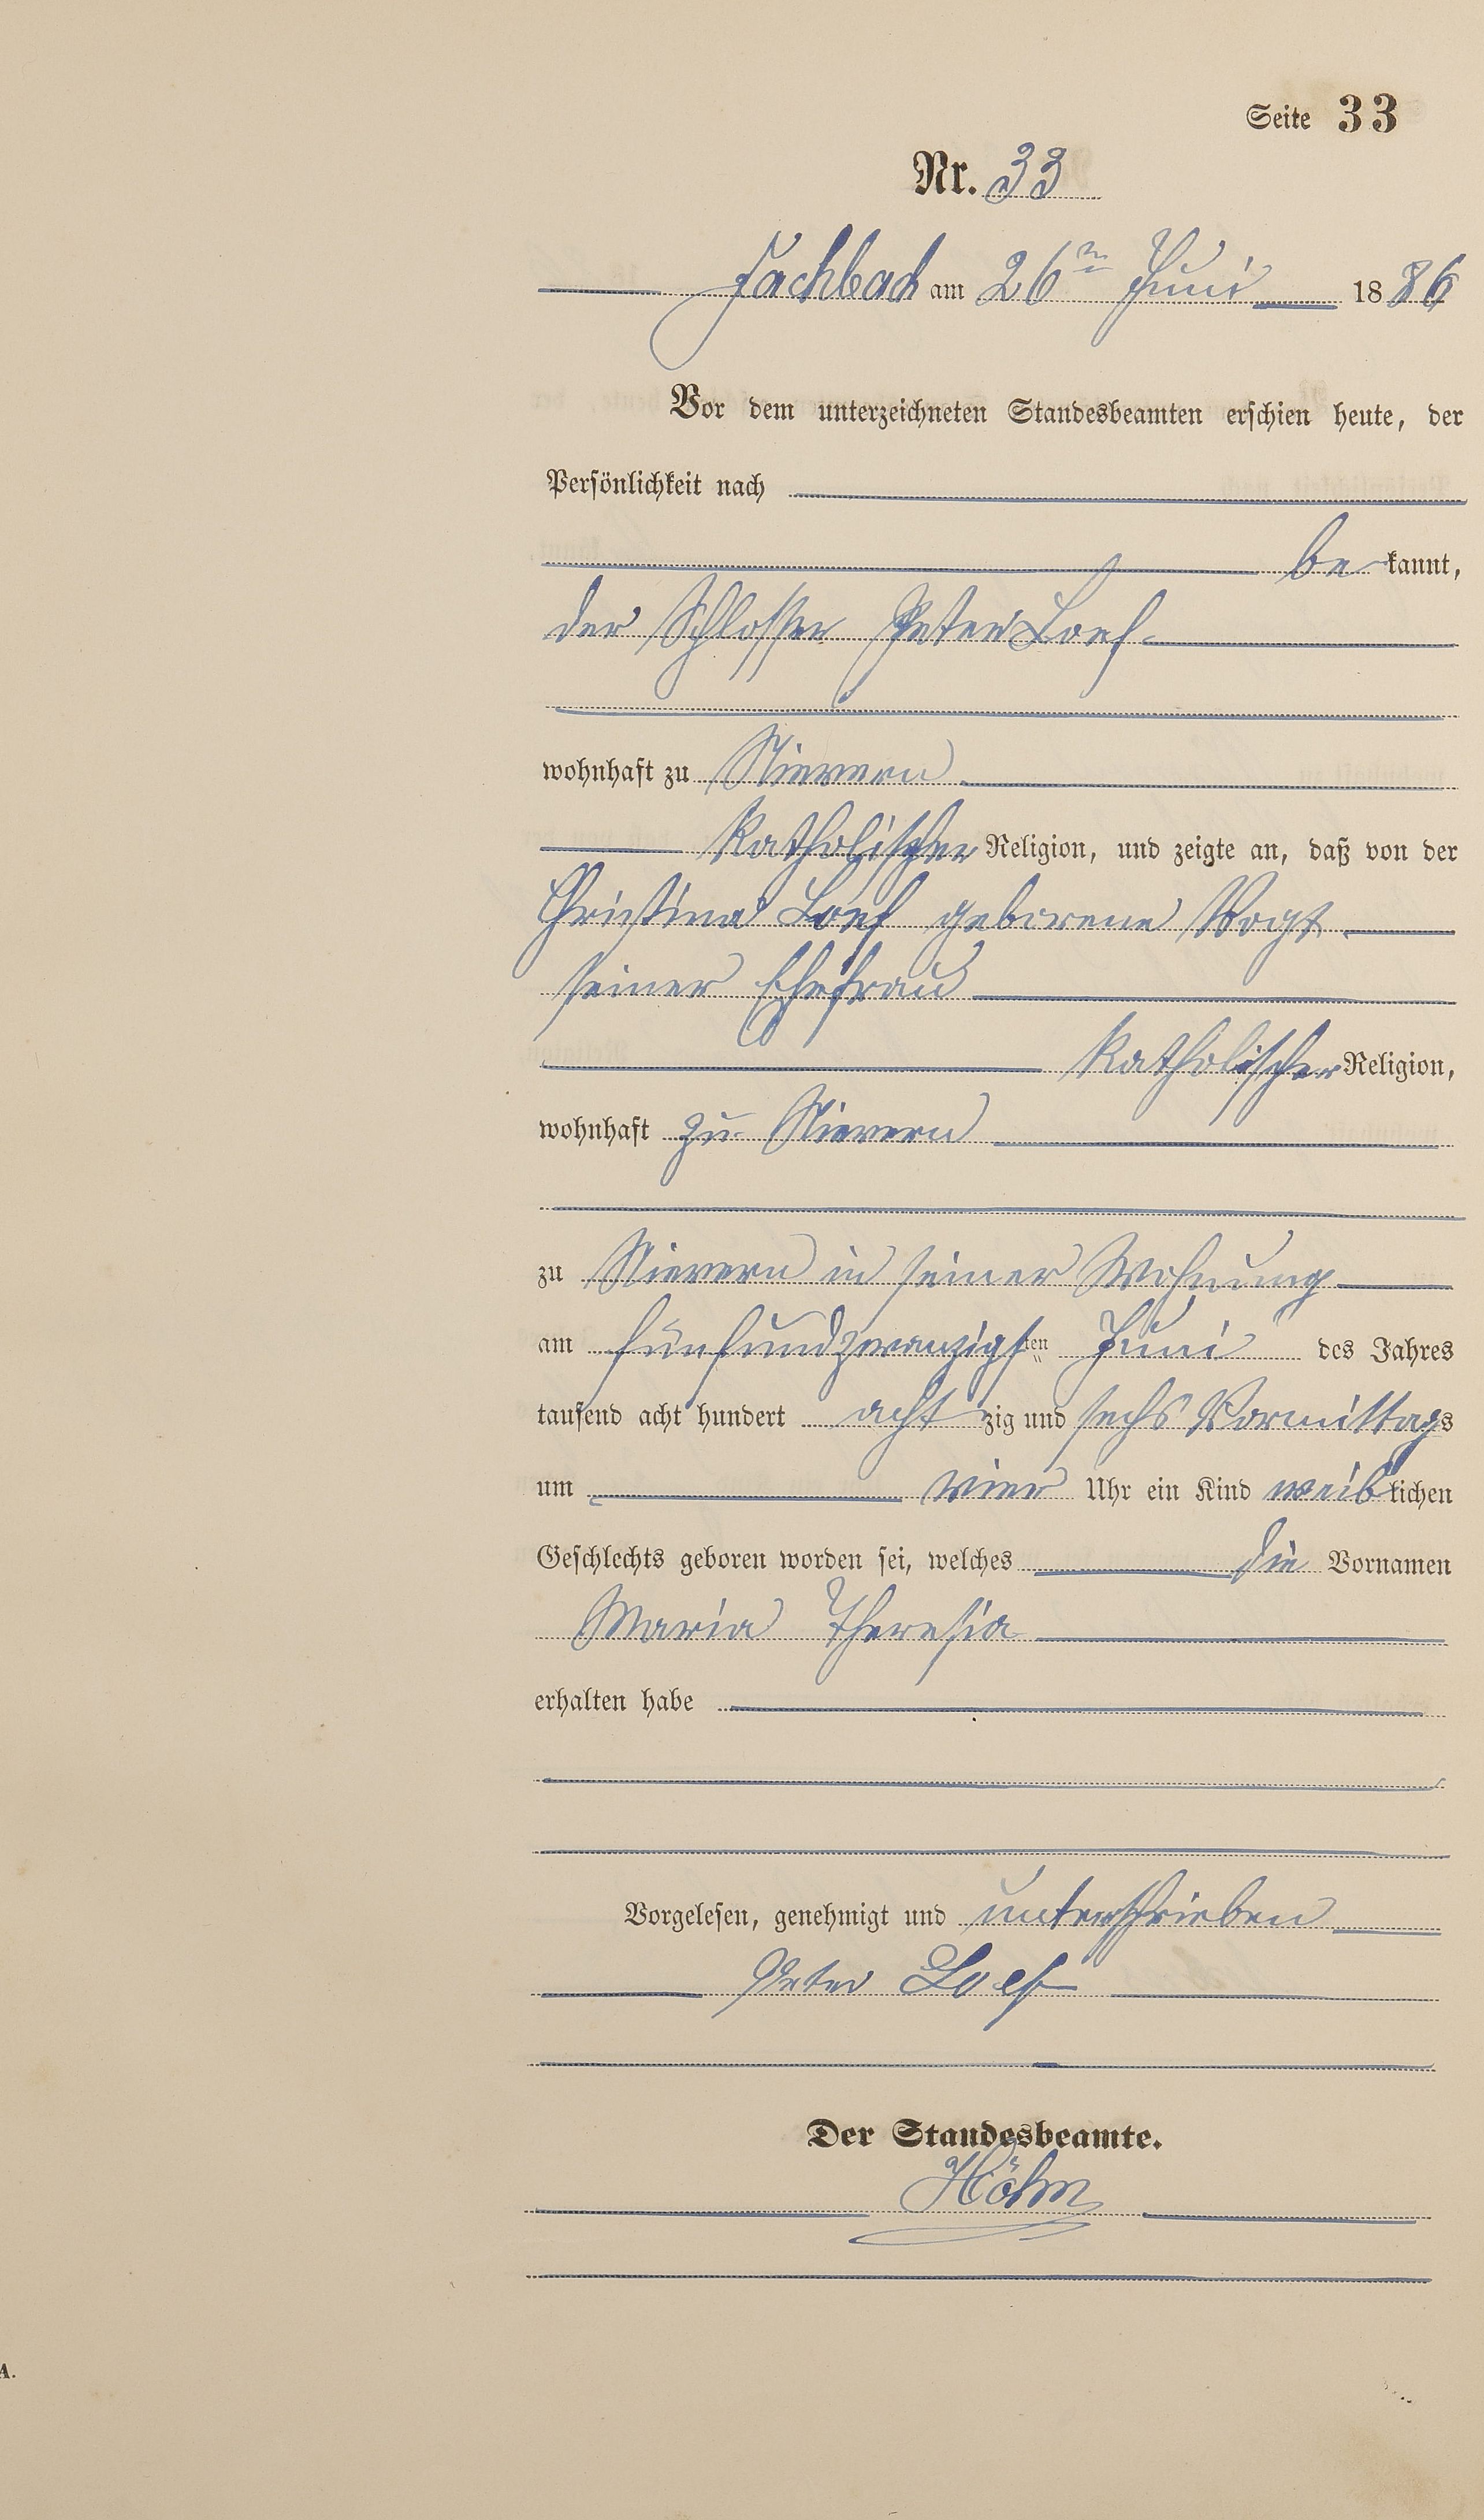 Seite 33
Nr. 33
Fachbach am 26ten Juni 1886
Vor dem unterzeichneten Standesbeamten erschien heute, der
Persönlichkeit nach
bekannt,
der Schlosser Peter Loef
wohnhaft zu Nievern
katholischer Religion, und zeigte an, daß von der
Christina Loef geborene Vogt
seiner Ehefrau
katholischer Religion,
wohnhaft zu Nievern
zu Nievern in seiner Wohnung
am fünfundzwanzigsten Juni des Jahres
tausend acht hundert achtzig und sechs Vormittags
um vier Uhr ein Kind weiblichen
Geschlechts geboren worden sei, welches die Vornamen
Maria Theresia
erhalten habe
Vorgelesen, genehmigt und unterschrieben
Peter Loef
Der Standesbeamte.
Höhn
A.